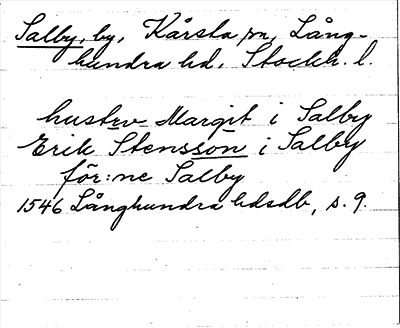 Salby, by, Kårsta sn, Lång-
hundra hd, Stockh. l.
hustrv Margit i Salby
Erik Stensson i Salby
för:ne Salby
1546 Långhundra hdsdb, s. 9.